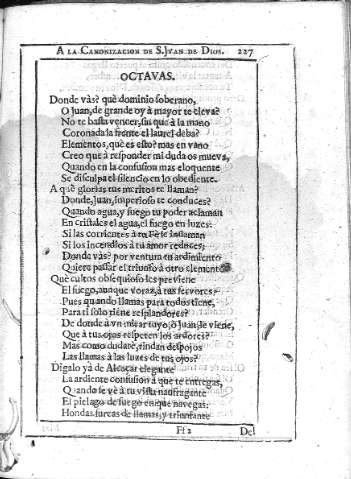 A LA CANONIZACION DE S. JVAN DE DIOS. 227
OCTAVAS.
Donde vàs? què dominio soberano,
O Juan, de grande oy à mayor te eleva?
No te basta vencer, sin que à la mano
Coronada la frente el laurel deba?
Elementos, què es esto? mas en vano
Creo que à responder mi duda os mueva,
Quando en la confusion mas eloquente
Se disculpa el silencio en lo obediente.
A què glorias tus meritos te llaman?
Donde, Juan, imperioso te conduces?
Quando agua, y fuego tu poder aclaman
En cristales el agua, el fuego en luzes:
Si las corrientes à tu Fè se inflaman
Si los incendios à tu amor reduces;
Donde vàs? por ventura tu ardimiento
Quiere passar el triunfo à otro elemento?
Què cultos obsequioso les previene
El fuego, aunque voraz, à tus fervores,
Pues quando llamas para todos tiene,
Para ti solo tiene resplandores?
De donde à vn mirar tuyo, ò Juan, le viene,
Que à tus ojos respeten los ardores?
Mas como dudarè, rindan despojos
Las llamas à las luzes de tus ojos?
Digalo yà de Alcoçar elegante
La ardiente confusion à que te entregas,
Quando se vè à tu vista naufragante
El pielago de fuego en que navegas:
Hondas surcas de llamas, y triunfante
Ff 2 Del